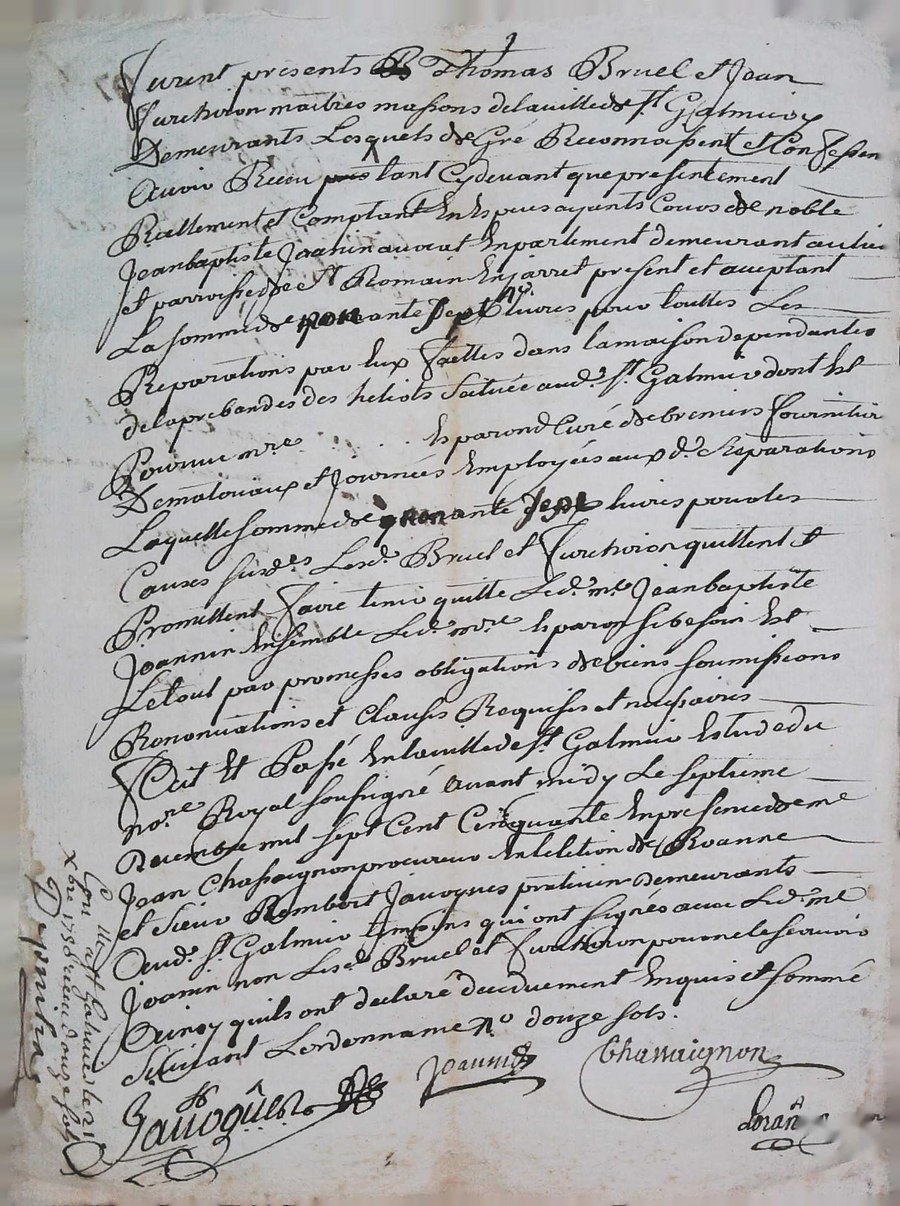 furent presents Thomas Bruel et Jean
furcheron maitres massons delaville de St Galmier
Demeurants Lesquels de Gré Reconnoissent et Confessen
Avoir Receu tant Cydevant que presentement
Reallement et Comptant En Espeus ayants Cours de noble
Jeanbaptiste Joannin avocat En parlement demeurant au lieu
et parroisse de St Romain En jarret present et aceptant
La somme de quarante sept livres pour touttes Les
Reparations par Eux faittes dans la maison dependantes
de la prebandes des heliots scituée aud. St Galmier dont Est
Pourvu mre Esparond Curé de fournitur
De matoriaux et Journées Employées aux d. Reparations
Laquelle somme de quarante sept livres pour les
Causes susdes Lesd. Bruel et furcheron quittent et
Promettent faire tenir quitte Led. mre Jeanbaptiste
Joannin Ensemble Led. mre Esparon si besoin Est
Le tout par promesses obligations de biens soumissions
Renonciations et Clauses Requises et necessaires
Fait Et Passé En la ville de St Galmier Estude du
nore Royal soussigné avant midy Le septieme
Decembre mil sept Cent Cinquante En presence de me
Jean Chassaignon procureur En lelection de Roanne
et sieur Rembert Javogues praticien demeurants
Aud. St Galmier temoins qui ont signés avec Led. me
Joanin non Lesd. Bruel et furcheron pour ne le scavoir
Ainsy quils ont declaré de ce duement Enquis et sommé
Suivant Lordonnance no douze sols.
Javogues Joannin Chassaignon
Con à St Galmier le 21
xbre 1750 reçu douze sols